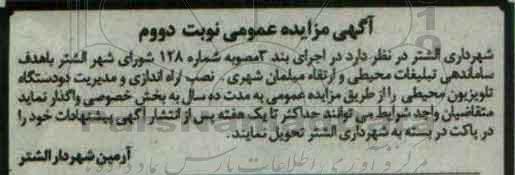 آگهی مزایده عمومی نوبت دووم
شهرداری الشتر در نظر دارد در اجرای بند ۳مصوبه شماره ۱۲۸ شورای شهر الشتر باهدف
ساماندهی تبلیغات محیطی و ارتقاء مبلمان شهری، نصب اراه اندازی و مدیریت دودستگاه
تلویزیون محیطی را از طریق مزایده عمومی به مدت ده سال به بخش خصوصی واگذار نماید
متقاضیان واجد شرایط می توانند حداکثر تا یک هفته پس از انتشار آگهی پیشنهادات خود را
در پاکت در بسته به شهرداری الشتر تحویل نمایند.
آرمین شهردار الشتر